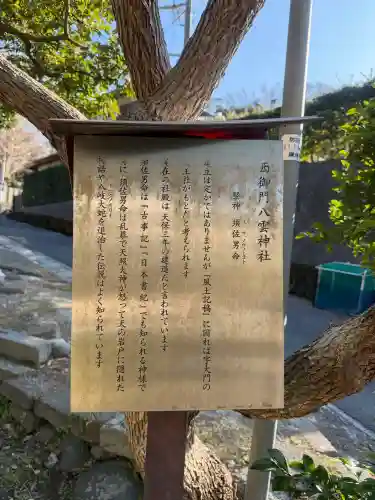 西御門八雲神社
祭神 須佐男命
すさのおのみこと
年社は定かではありませんが「風土記稿」に因れば字大門の
王社がもとだと考えられます
在の社殿は天保三年の建造だと言われています
須佐男命は「古事記」「日本書紀」でも知られる神様で
に須佐男命は乱暴で天照大神が怒って天の岩戸に隠れた
話や八岐大蛇を退治した伝説はよく知られています